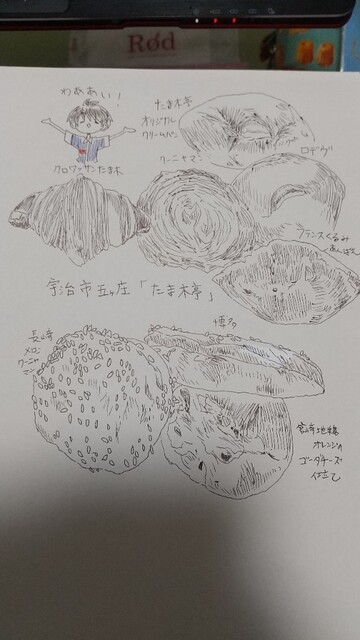 Rød
わああい!
たま木亭
オリジナル
クリームパン
ロデヴ
クーニャマン
クロワッサンたま木
フランスくるみ
あんぱん
宇治市五ヶ庄「たま木亭」
長崎
メロン
クーニャ
マン
博多
宮崎地鶏
オレンジの
ゴーダチーズ
仕立て